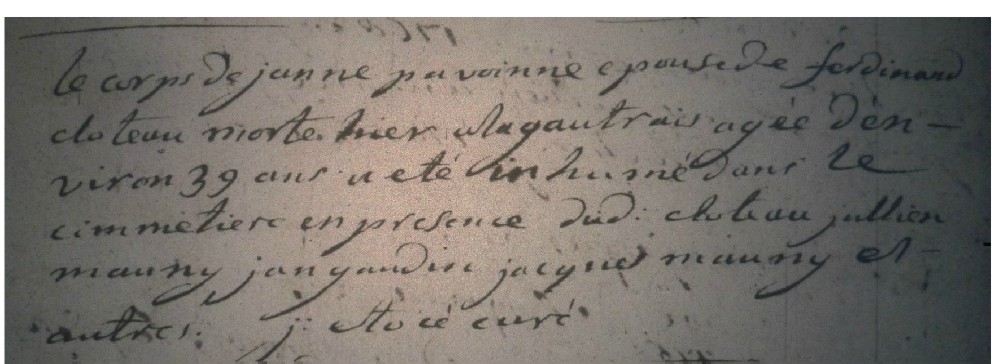 le corps de janne pavoinne epouse de ferdinand
cloteau morte hier a la gautrais agée d'en-
viron 39 ans a eté inhumé dans le
cimmetiere en presence dud: cloteau jullien
mauny jan gaudin jacque mauny et
autres. j: curé